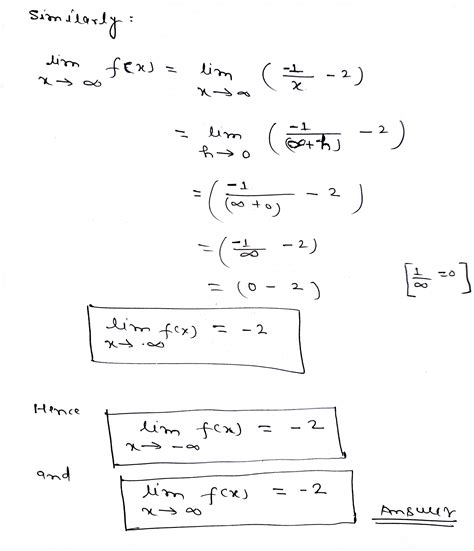 Similarly:
lim x→∞ f(x) = lim x→∞ (-1/x - 2)
= lim h→0 (-1/(∞+h) - 2)
= (-1/(∞+0) - 2)
= (-1/∞ - 2)
= (0 - 2) [1/∞ = 0]
lim x→∞ f(x) = -2
Hence lim x→-∞ f(x) = -2
and lim x→∞ f(x) = -2 Answer